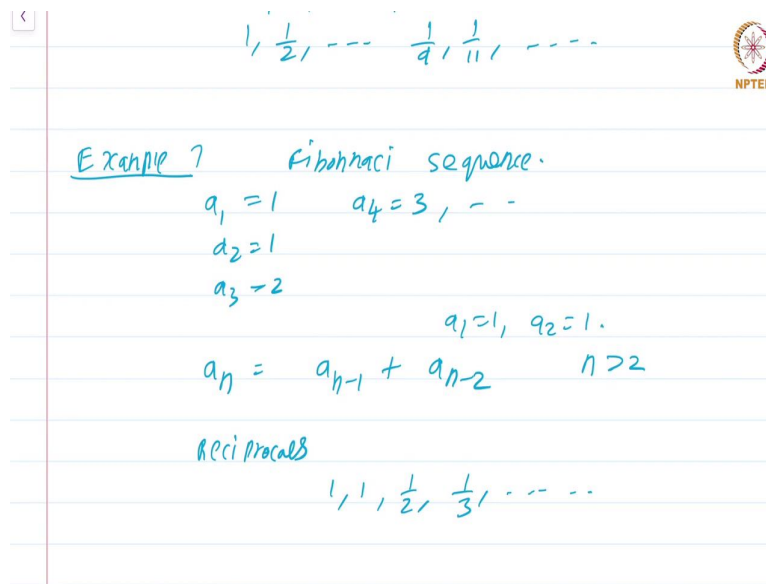 1, 1/2, --- 1/9, 1/11, ----
NPTEL
Example 7 Fibonnaci sequence.
a₁ = 1 a₄ = 3, - -
a₂ = 1
a₃ = 2
a₁ = 1, a₂ = 1.
aₙ = aₙ₋₁ + aₙ₋₂ n > 2
Reciprocals
1, 1, 1/2, 1/3, - -- --